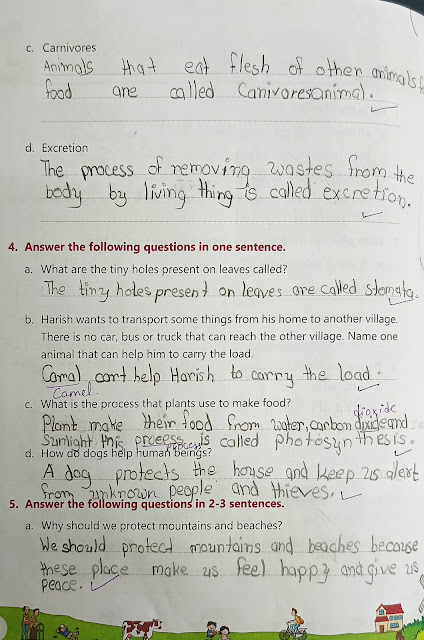 c. Carnivores
Animals that eat flesh of other animals f
food are called Canivoresanimal.
d. Excretion
The process of removing wastes from the
body by living thing is called excretion.
4. Answer the following questions in one sentence.
a. What are the tiny holes present on leaves called?
The tiny holes present on leaves are called stomata.
b. Harish wants to transport some things from his home to another village.
There is no car, bus or truck that can reach the other village. Name one
animal that can help him to carry the load.
Camal can help Harish to carry the load.
Camel
c. What is the process that plants use to make food?
dioxide
Plant make their food from water, carbon dixide and
Sunlight this preeess is called photosynthesis.
process
d. How do dogs help human beings?
A dog protects the house and keep us alert
from unknown people and thieves.
5. Answer the following questions in 2-3 sentences.
a. Why should we protect mountains and beaches?
We should protect mountains and beaches because
these place make us feel happy and give us
peace.